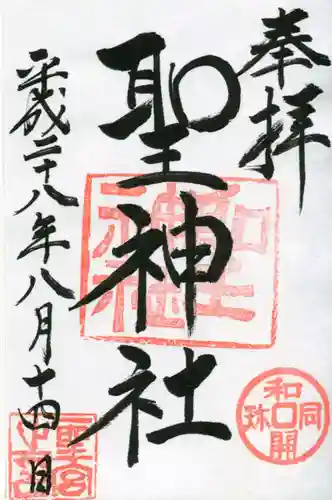 奉拝
聖神社
平成二十八年八月十四日
和同開珎